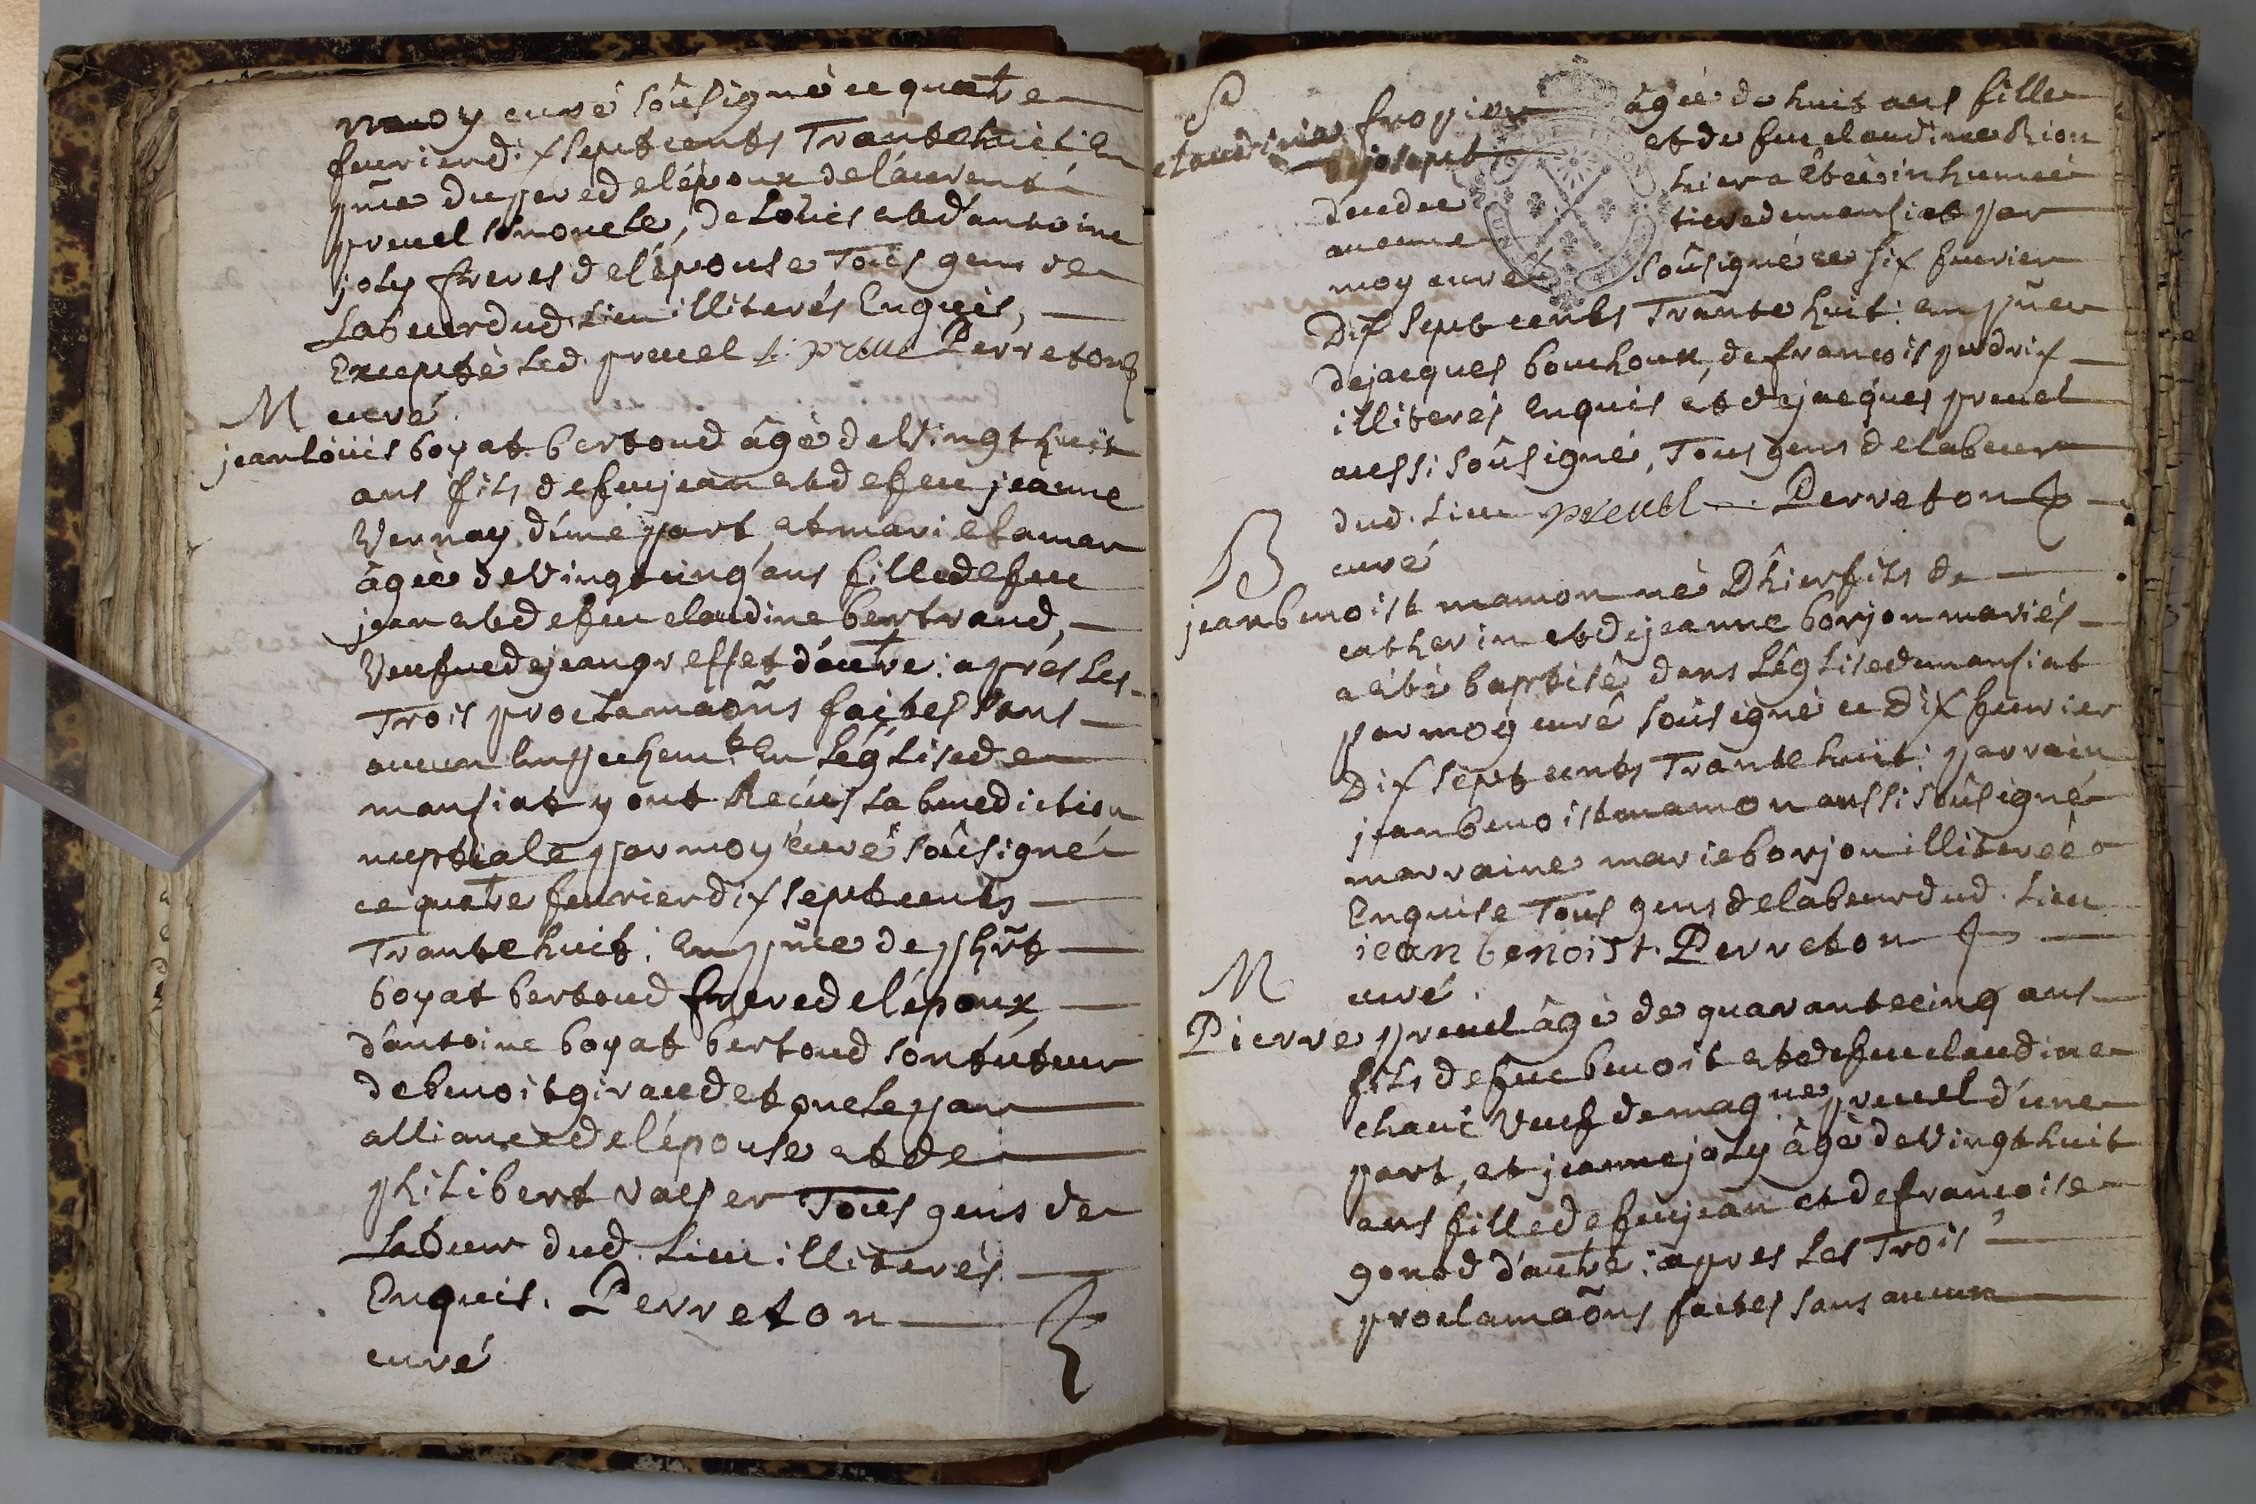 moy curé soûsigné ce quatre
feurier dix sept cents Trante huit : En
pñce du pere de lépoux de laurent
preuel son oncle, de loüis et d'antoine
joly freres de lépouse Tous gens de
Labeur dud. Lieu illiterés Enquis,
Excepté led. preuel L: preuel Perreton
curé
M
jean loüis boyat bertoud âgé de Vingt huit
ans fils de feu jean et de feu jeanne
Vernay d'une part et marie famar
âgée de Vingt cinq ans fille de feu
jean et de feu claudine bertrand,
Veufue de jean greffet d'autre : aprés Les
Trois proclamaoñs faites sans
aucun Empechemt. En Léglise de
mansiat y ont Recüs La benediction
nuptiale par moy curé soûsigné
ce quatre feurier dix sept cents
Trante huit : En pñce de phñt
boyat bertoud frere de lépoux,
d'antoine boyat bertoud son tuteur
de benoit giraudet oncle par
alliance de lépouse et de
philibert valser Tous gens de
Labeur dud. Lieu illiterés
Enquis. Perreton
curé
S
claudine fropier âgée de huit ans fille
de josept et de feu claudine Rion
decedee hier a êtée inhumée
tiere de mansiat par
moy curé soûsigné ce six feurier
Dix sept cents Trante huit : en pñce
de jacques bouchoux, de francois perdrix
illiterés Enquis et de jacques preuel
aussi soûsigné, Tous gens de labeur
dud. Lieu preuel Perreton
curé
B
jean benoist mamon né D'hier fils de
catherin et de jeanne borjon mariés
a été baptisé dans Léglise de mansiat
par moy curé soûsigné ce Dix feurier
Dix sept cents Trante huit : parrain
jean benoist mamon aussi soûsigné
marraine marie borjon illiterée
Enquise Tous gens de labeur dud. Lieu
iean benoist. Perreton
curé
M
Pierre preuel âgé de quarante cinq ans
fils de feu benoit et de feu claudine
Veuf de magne preuel d'une
part, et jeanne joly âgé de Vingt huit
ans fille de feu jean et de francoise
gonod d'autre : apres Les Trois
proclamaõns faites sans aucun